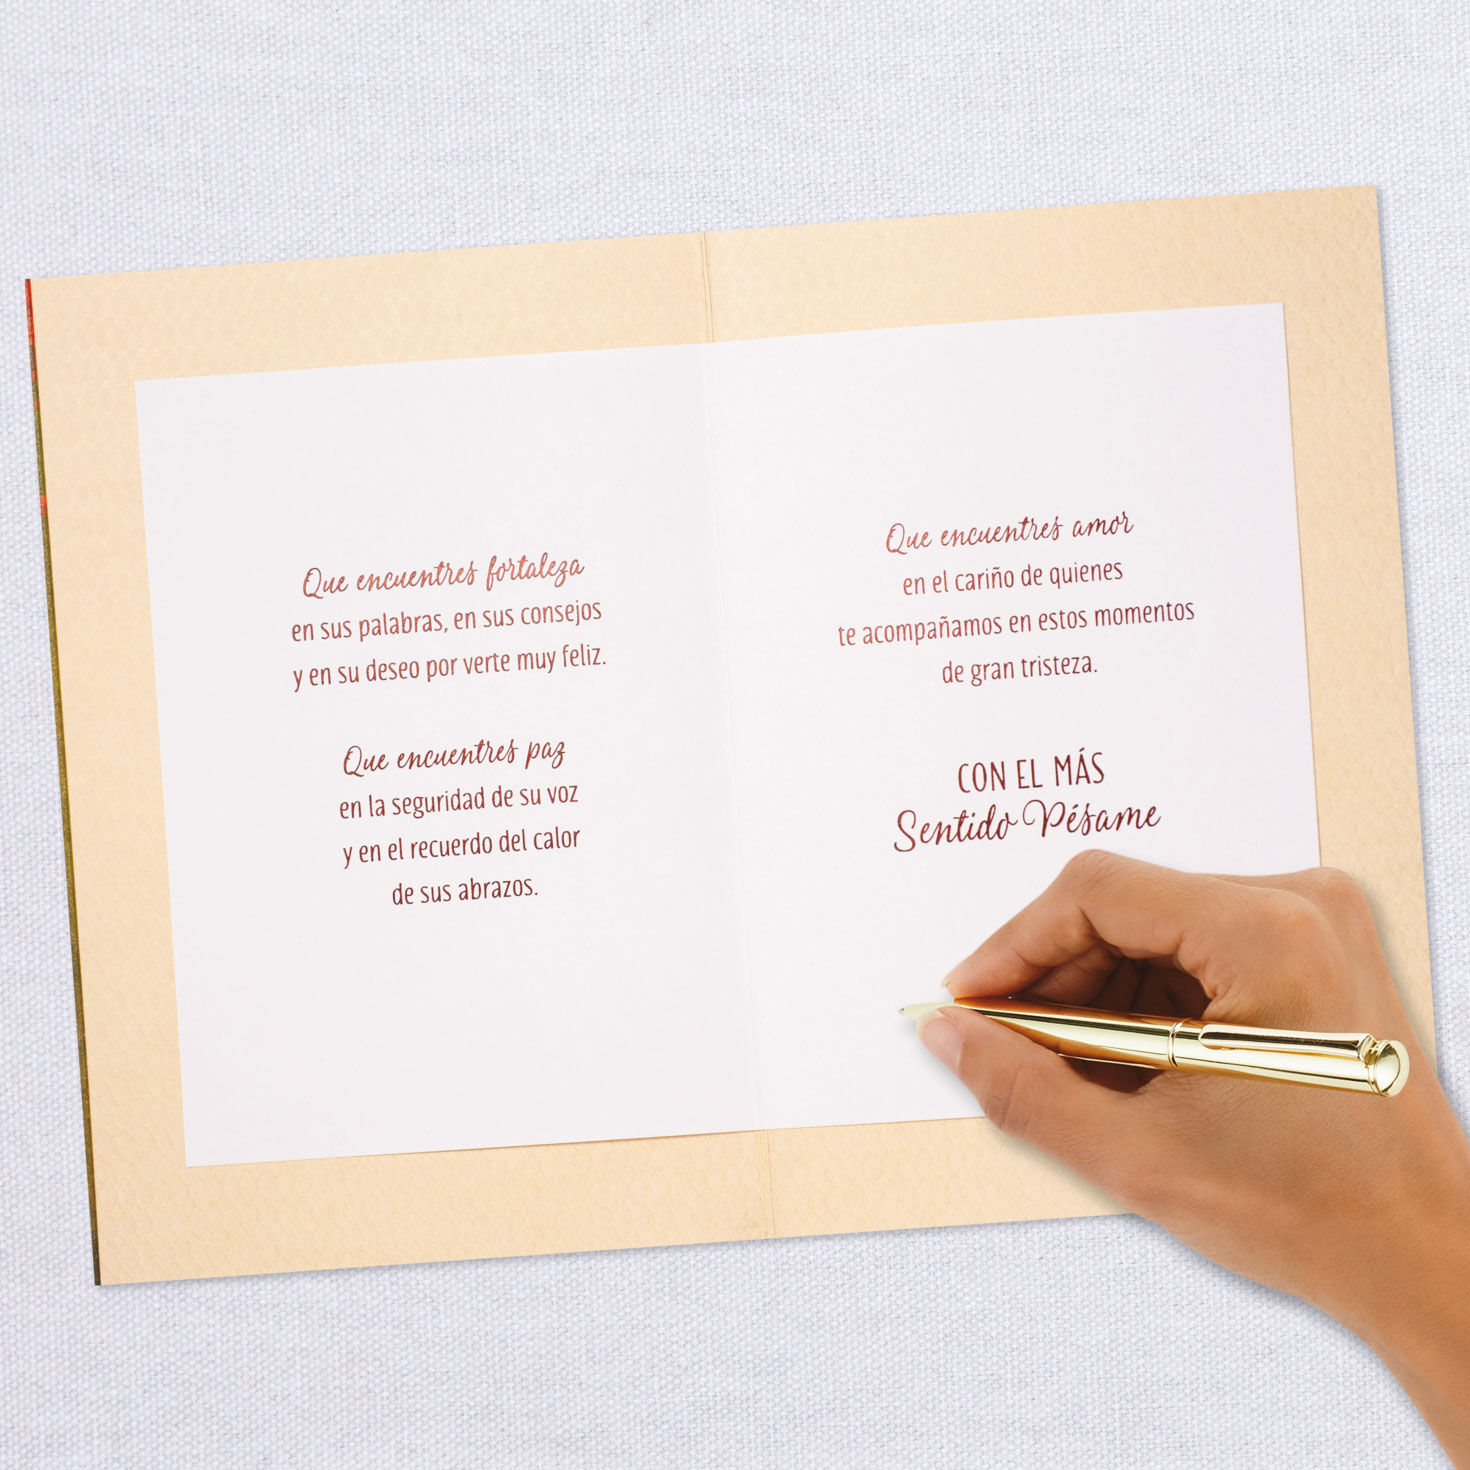 Que encuentres fortaleza
en sus palabras, en sus consejos
y en su deseo por verte muy feliz.
Que encuentres paz
en la seguridad de su voz
y en el recuerdo del calor
de sus abrazos.
Que encuentres amor
en el cariño de quienes
te acompañamos en estos momentos
de gran tristeza.
CON EL MÁS
Sentido Pésame